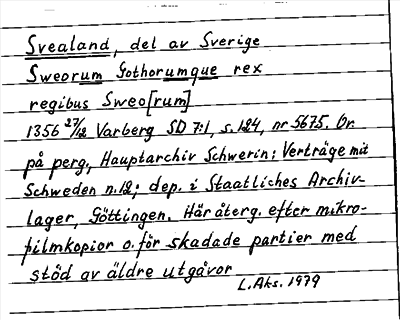 Svealand, del av Sverige
Sweorum Gothorumque rex
regibus Sweo[rum]
1356 27/12 Varberg SD 7:1, s. 124, nr 5675. Or.
på perg., Hauptarchiv Schwerin: Verträge mit
Schweden n.12; dep. i Staatliches Archiv-
lager, Göttingen. Här återg. efter mikro-
filmkopior o. för skadade partier med
stöd av äldre utgåvor
L. Aks. 1979